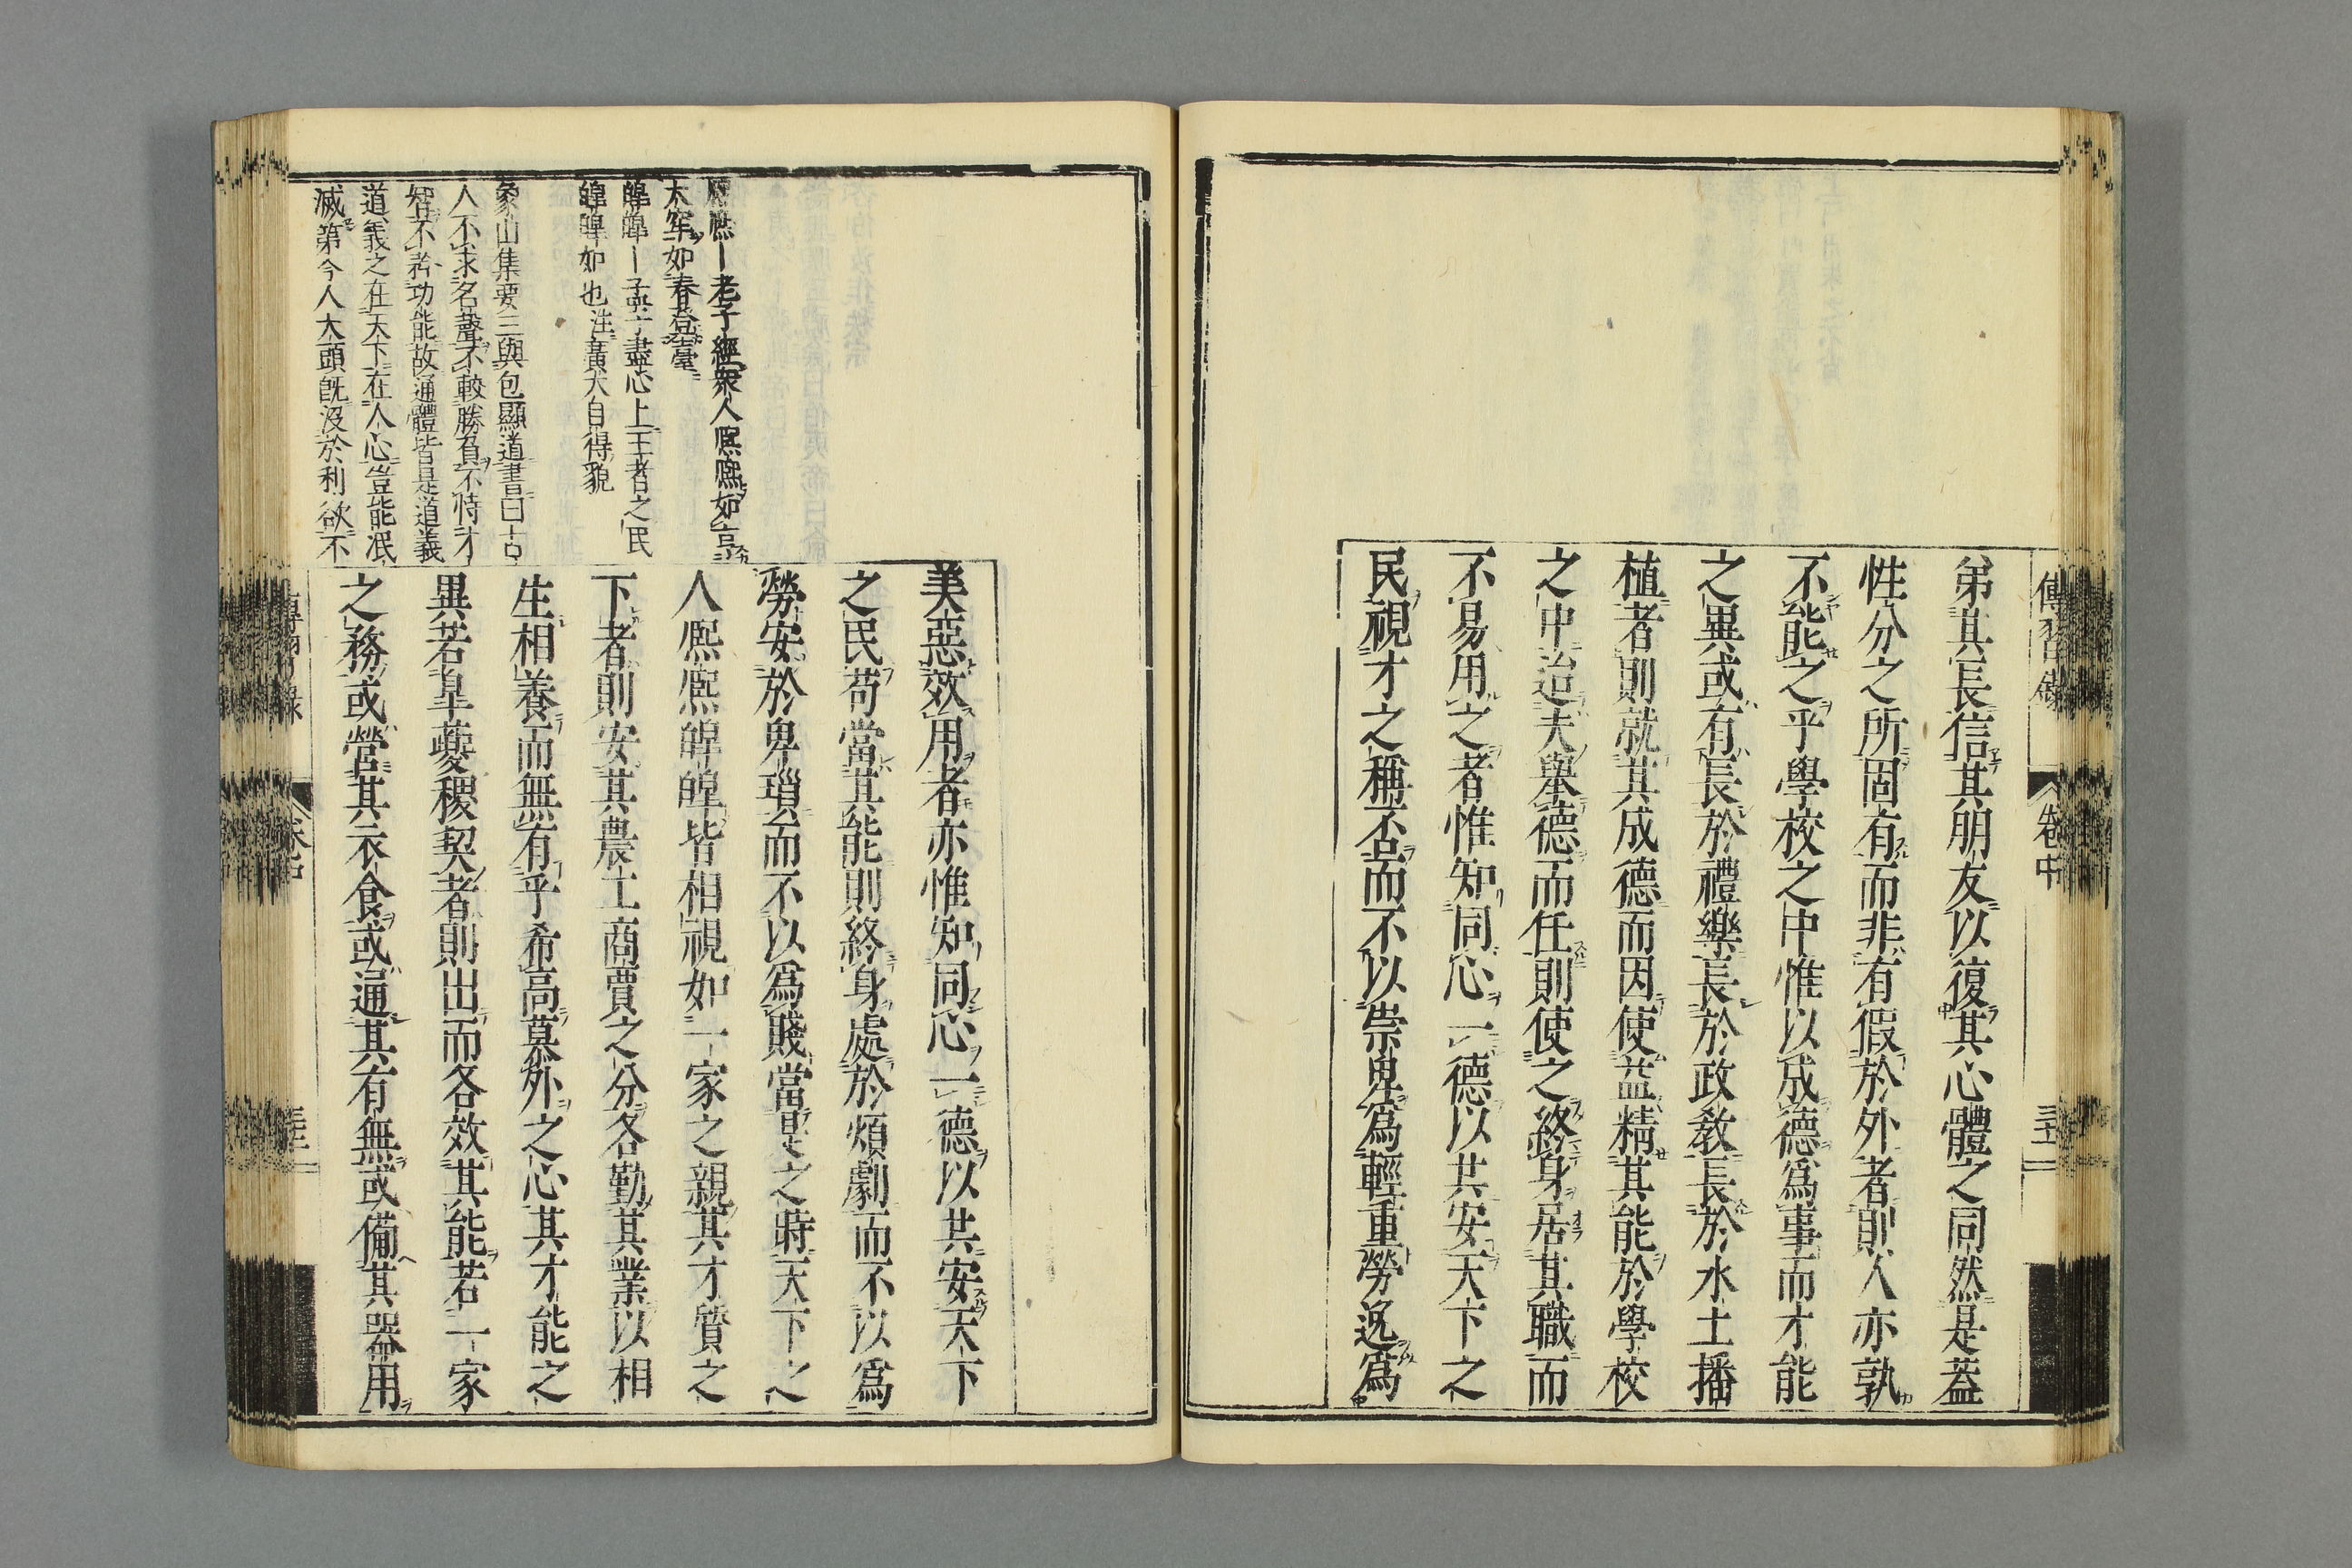 傳習錄
卷中
弟其長信其朋友以復其心體之同然是蓋
性分之所固有而非有假於外者則人亦孰
不能之乎學校之中惟以成德爲事而才能
之異或有長於禮樂長於政教長於水土播
植者則就其成德而因使益精其能於學校
之中迨夫舉德而任則使之終身居其職而
不易用之者惟知同心一德以共安天下之
民視才之稱否而不以崇卑爲輕重勞逸爲
熙熙—老子經衆人熙熙如享
太牢如春登臺
皥皥—孟子盡心上王者之民
皥皥如也注廣大自得貌
象山集要三與包顯道書曰古
人不求名聲不較勝負不恃才
智不矜功能故通體皆是道義
道義之在天下在人心豈能泯
滅第今人大頭旣沒於利欲不
美惡效用者亦惟知同心一德以共安天下
之民苟當其能則終身處於煩劇而不以爲
勞安於卑瑣而不以爲賤當是之時天下之
人熙熙皥皥皆相視如一家之親其才質之
下者則安其農工商賈之分各勤其業以相
生相養而無有乎希高慕外之心其才能之
異若皐夔稷契者則出而各效其能若一家
之務或營其衣食或通其有無或備其器用
傳習錄
卷中